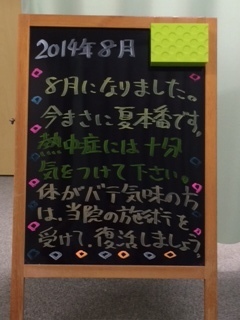 2014年8月
8月になりました。
今まさに夏本番です。
熱中症には十分
気をつけて下さい。
体がバテ気味の方
は、当院の施術を
受けて、復活しましょう。